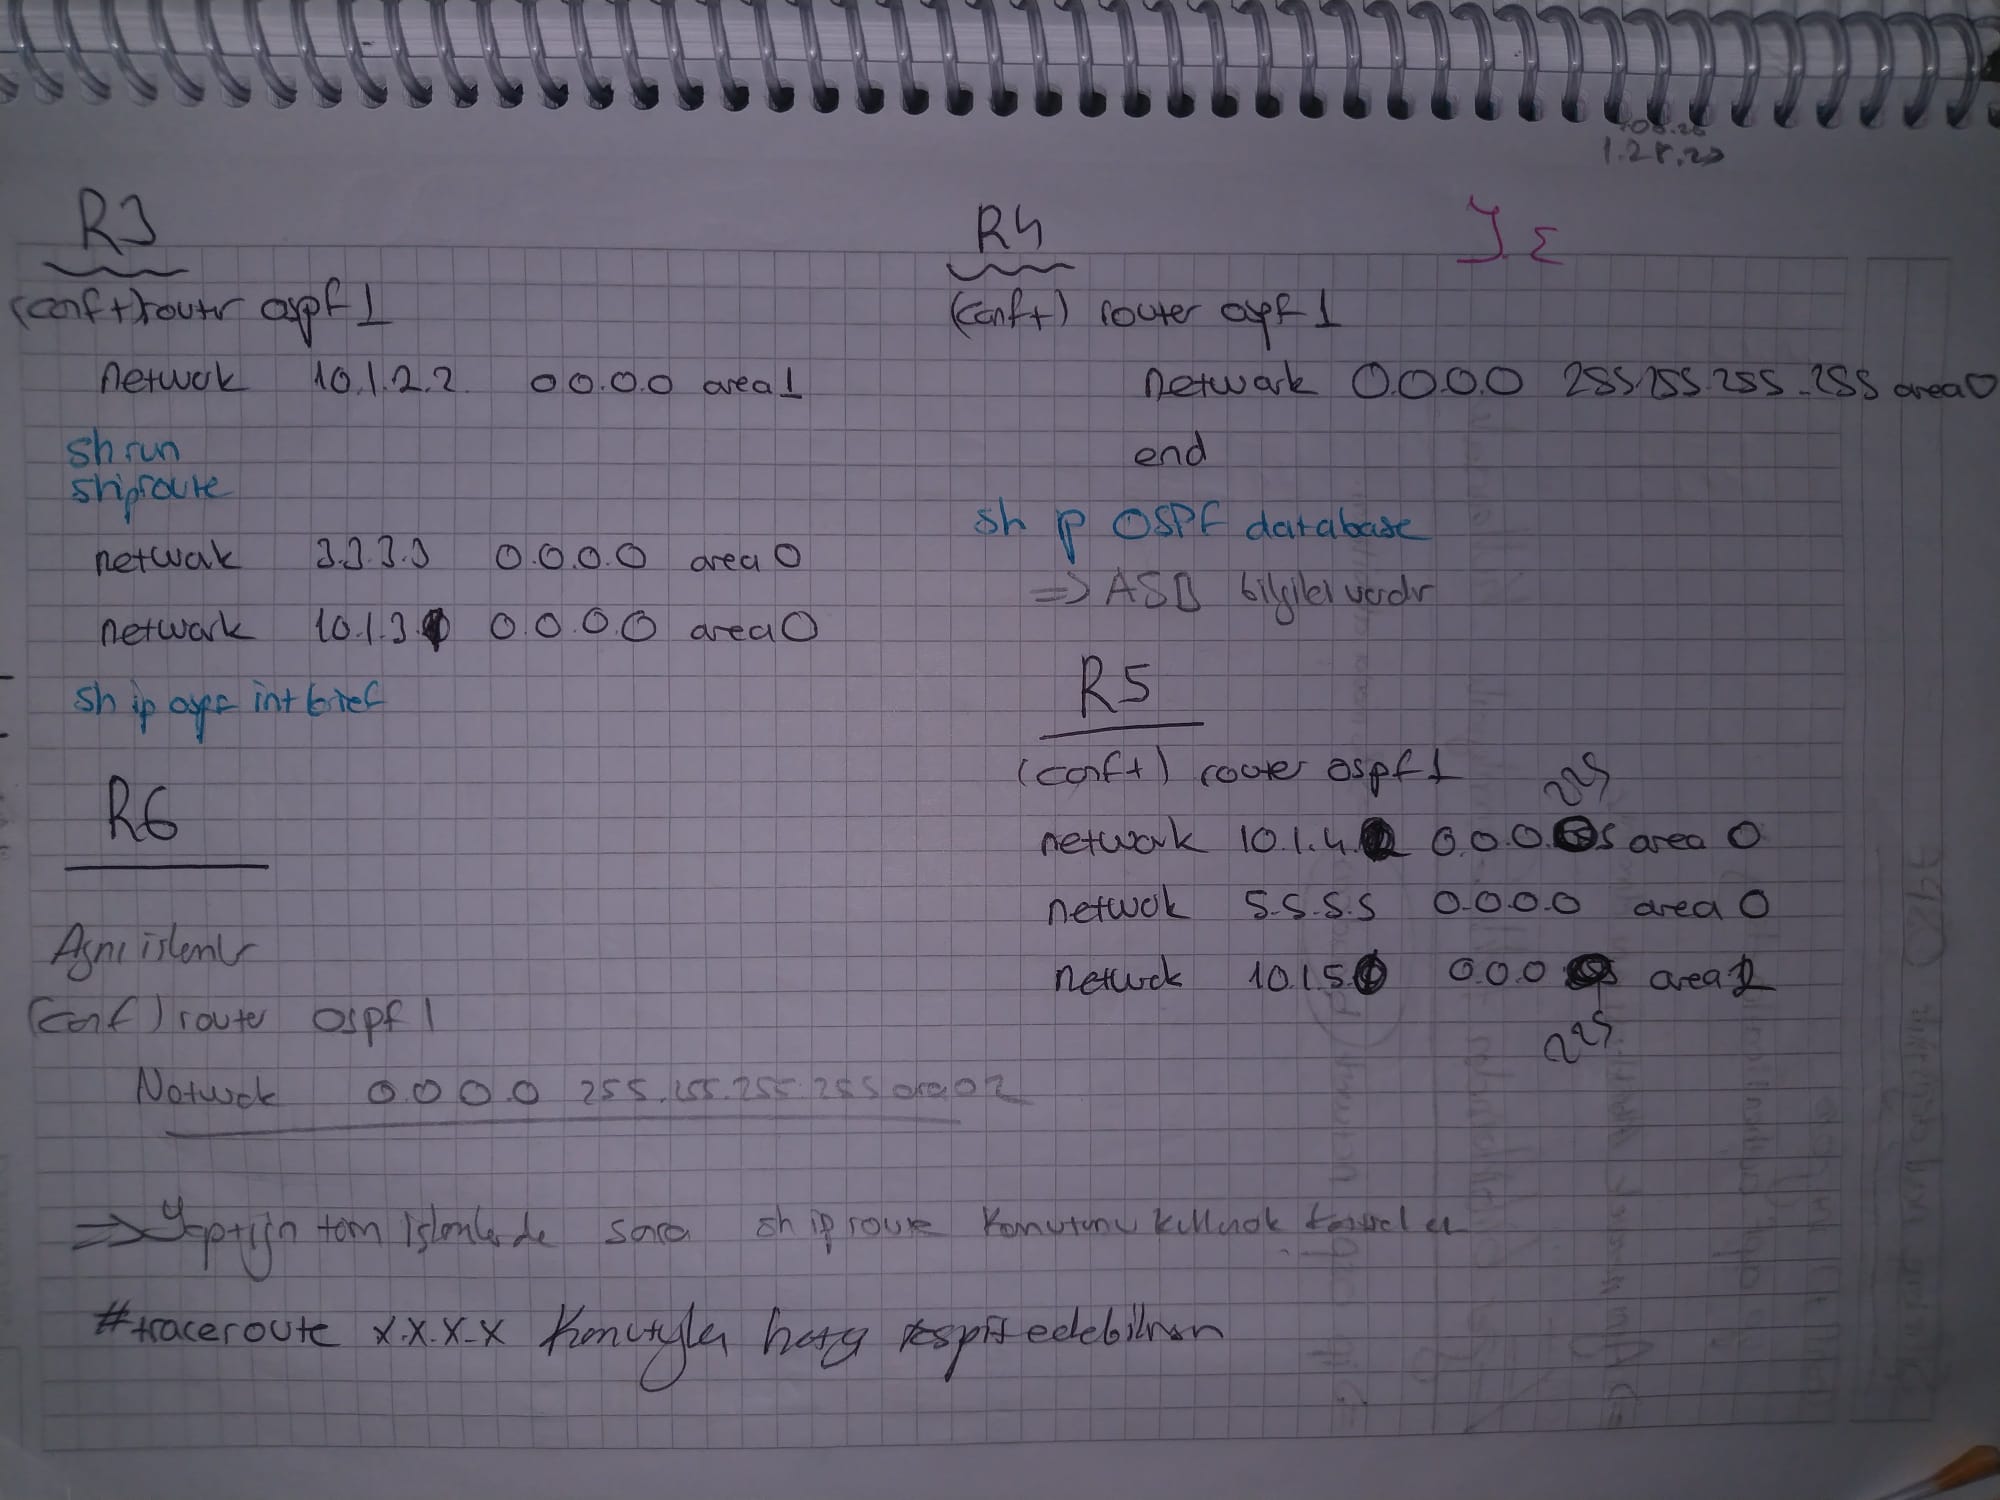 R3
(conf t) router ospf 1
network 10.1.2.2 0.0.0.0 area 1
sh run
sh ip route
network 3.3.3.3 0.0.0.0 area 0
network 10.1.3. 0.0.0.0 area 0
sh ip ospf int brief
R6
Aynı işlemler
(conf) router ospf 1
Network 0.0.0.0 255.255.255.255 area 2
R4
(conf t) router ospf 1
network 0.0.0.0 255.255.255.255 area 0
end
sh ip OSPF database
=> bilgileri verdir
R5
(conf t) router ospf 1
network 10.1.4. 0.0.0. area 0
network 5.5.5.5 0.0.0.0 area 0
network 10.1.5. 0.0.0. area 2
=> Yaptığın tüm işlemlerde sonra sh ip route Komutunu kullanarak
#traceroute x.x.x.x Komutuyla hata tespit edebilirsin